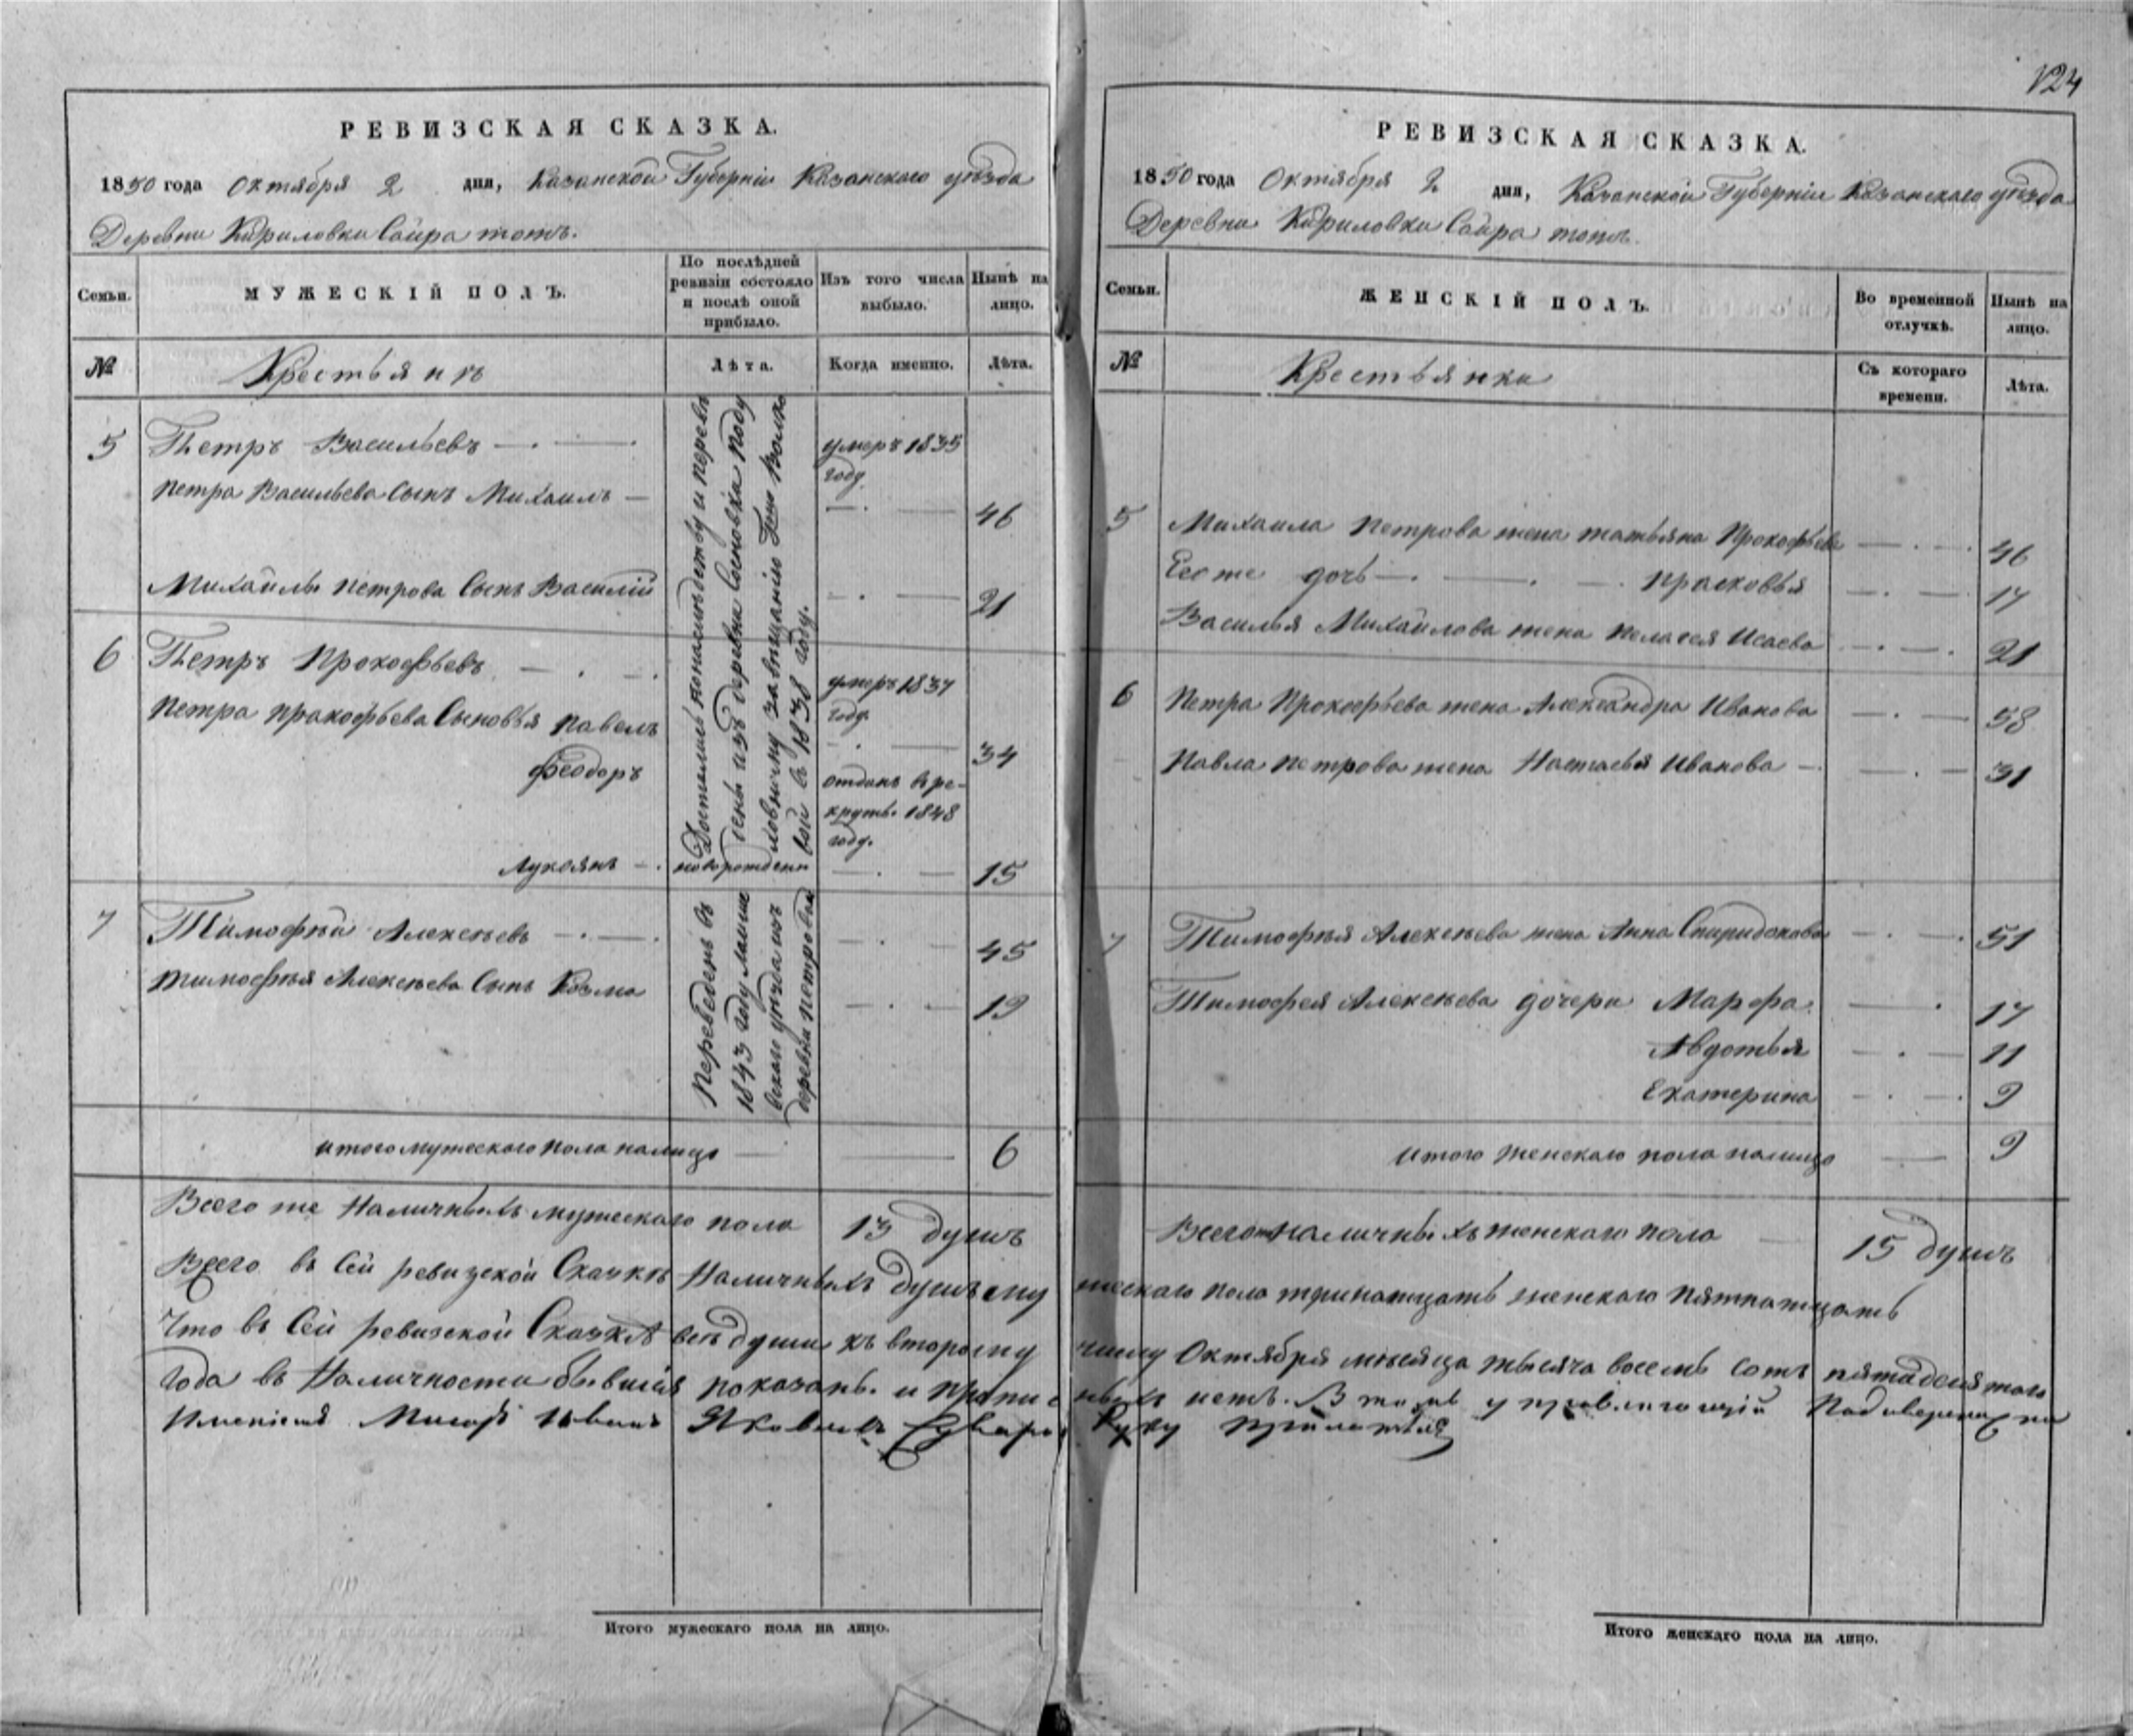 124
РЕВИЗСКАЯ СКАЗКА.
1850 года Октября 2 дня, Казанской Губерніи Казанскаго уѣзда
Деревни Кириловки Саира тожъ.
Семьи.
МУЖЕСКІЙ ПОЛЪ.
По послѣдней
ревизіи состояло
и послѣ оной
прибыло.
Изъ того числа
выбыло.
Нынѣ на
лицо.
№
Крестьянъ
Лѣта.
Когда именно.
Лѣта.
5 Петръ Васильевъ умеръ 1835
году
Петра Васильева Сынъ Михаилъ 46
Михайлы Петрова Сынъ Василій 21
Достались по наслѣдству и переве
дены изъ деревни Сосновки по ду
ховному завѣщанію Волко
вой въ 1838 году.
6 Петръ Прокофьевъ умеръ 1837
году
Петра Прокофьева Сыновья Павелъ 34
Феодоръ отданъ въ ре-
круты 1848
году.
Лукоянъ новорожденъ 15
7 Тимофѣй Алексѣевъ 45
Тимофѣя Алексѣева Сынъ Козма 19
Переведенъ въ
1843 году Лаише
вскаго уѣзда изъ
деревни Петровки
итого мужескаго пола налицо 6
Всего же Наличныхъ мужескаго пола 13 душъ
РЕВИЗСКАЯ СКАЗКА.
1850 года Октября 2 дня, Казанской Губерніи Казанскаго уѣзда
Деревни Кириловки Саира тожъ.
Семьи.
ЖЕНСКІЙ ПОЛЪ.
Во временной
отлучкѣ.
Нынѣ на
лицо.
№
Крестьянки
Съ котораго
времени.
Лѣта.
5 Михаила Петрова жена татьяна Прокофьева 46
Ево же дочь прасковья 17
Василья Михайлова жена пелагея Исаева 21
6 Петра Прокофьева жена Александра Иванова 58
Павла петрова жена Настасья Иванова 31
7 Тимофѣя Алексѣева жена Анна Спиридонова 51
Тимофея Алексѣева дочери Марфа 17
Авдотья 11
Екатерина 9
итого женскаго пола налицо 9
Всего наличныхъ женскаго пола 15 душъ
Всего въ Сей ревизской Сказкѣ Наличныхъ душъ му жескаго пола тринатцать женскаго пятнатцать
Что въ Сей ревизской Сказкѣ всѣ души къ второму числу Октября мѣсяца тысяча восемь сотъ пятадесятаго
Года въ Наличности бывшія показаны и пропис ныхъ нетъ. В томъ
Иванъ Яковлевъ руку приложилъ
Итого мужескаго пола на лицо.
Итого женскаго пола на лицо.